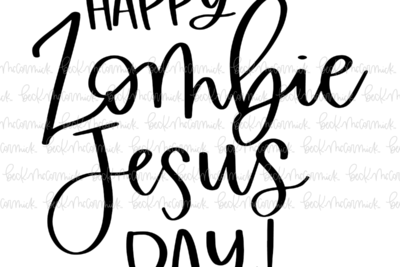 HAPPY
Zombie
Jesus
DAY!